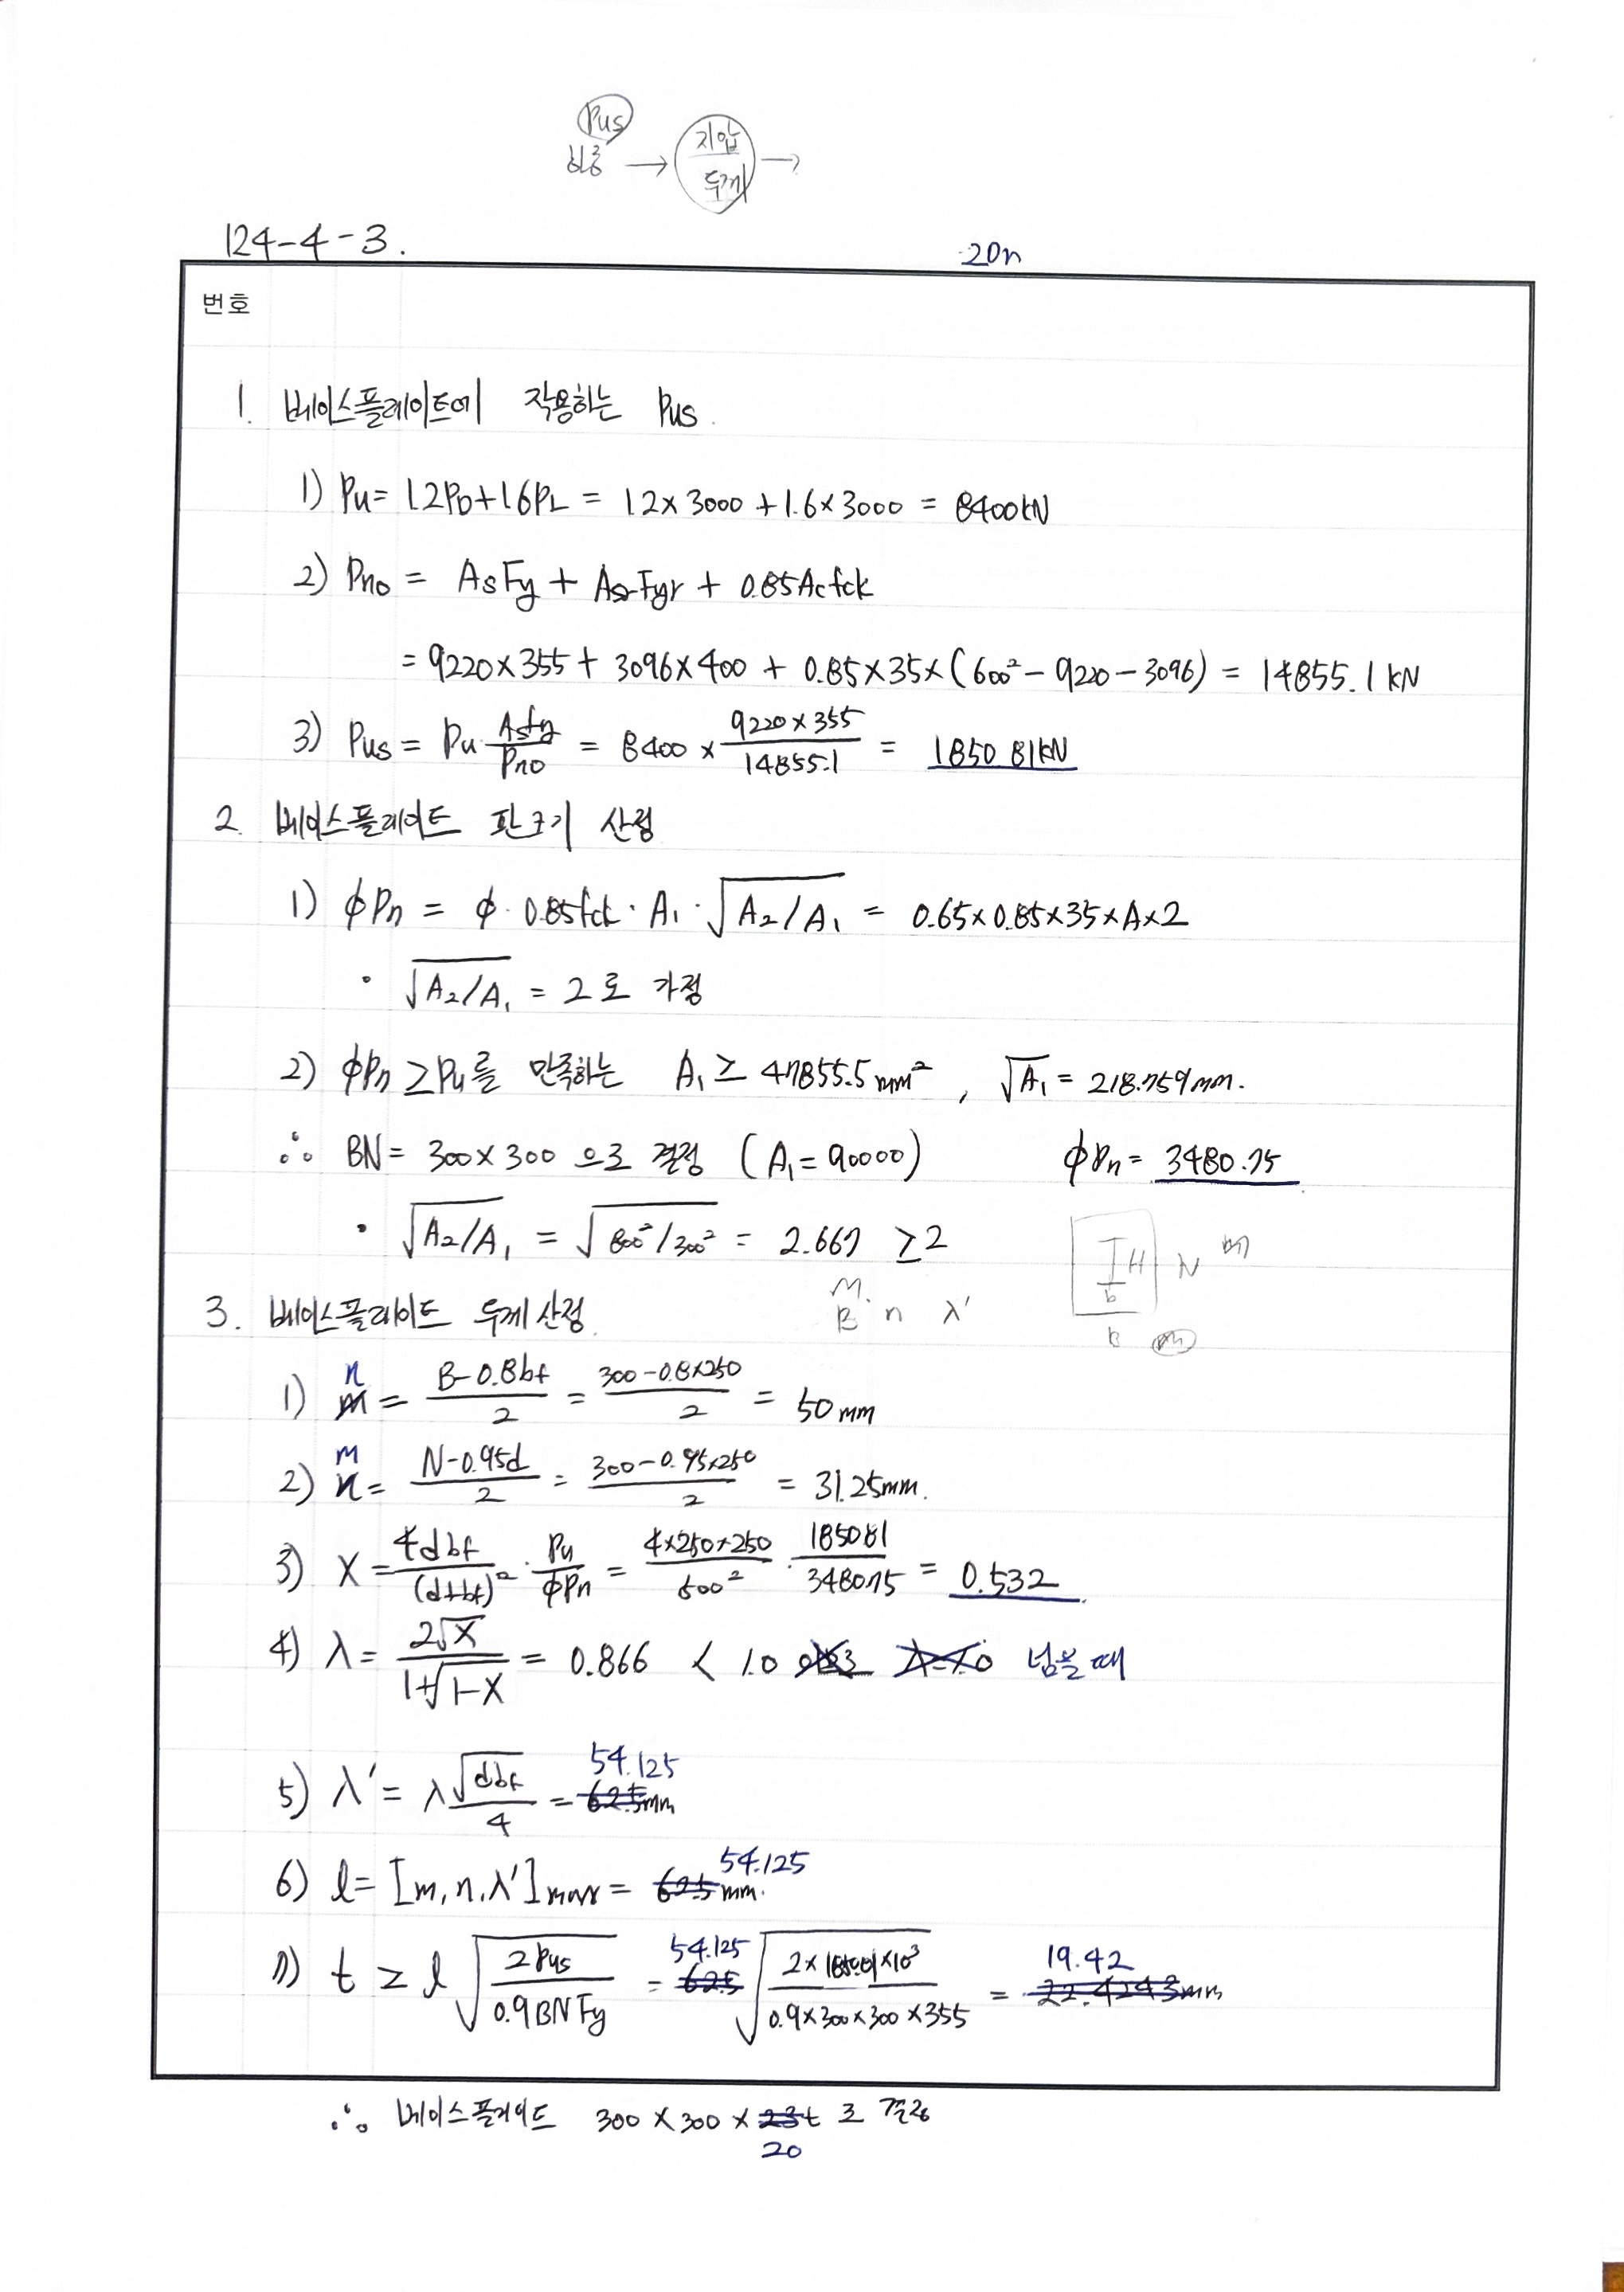 Pus
하중 → 지압 두께 →
124-4-3.
20n
번호
1. 베이스플레이트에 작용하는 Pus.
1) Pu = 1.2PD + 1.6PL = 1.2 × 3000 + 1.6 × 3000 = 8400kN
2) Pno = AsFy + AsrFyr + 0.85Acfck
= 9220×355 + 3096×400 + 0.85×35×(600² - 9220 - 3096) = 14855.1 kN
3) Pus = Pu · Asfy/Pno = 8400 × (9220×355)/14855.1 = 1850.81kN
2. 베이스플레이트 판크기 산정
1) φPn = φ · 0.85fck · A₁ · √(A₂/A₁) = 0.65×0.85×35×A×2
· √(A₂/A₁) = 2로 가정
2) φPn ≥ Pu를 만족하는 A₁ ≥ 47855.5mm², √A₁ = 218.759mm.
∴ BN = 300×300 으로 결정 (A₁ = 90000) φPn = 3480.75
· √(A₂/A₁) = √(800²/300²) = 2.667 ≥ 2
H N m
b
B m
M.
B n λ'
3. 베이스플레이트 두께산정.
1) n = (B-0.8bf)/2 = (300-0.8×250)/2 = 50mm
2) m = (N-0.95d)/2 = (300-0.95×250)/2 = 31.25mm.
3) X = 4dbf/(d+bf)² · Pu/φPn = (4×250×250)/500² · 1850.81/3480.75 = 0.532
4) λ = 2√X/(1+√(1-X)) = 0.866 < 1.0 넘을 때
5) λ' = λ√(dbf)/4 = 54.125 mm
6) l = [m, n, λ']max = 54.125 mm.
7) t ≥ l√(2Pus/(0.9BNFy)) = 54.125 √((2×1850.81×10³)/(0.9×300×300×355)) = 19.42 mm
∴ 베이스플레이트 300 × 300 × 20 t 로 결정